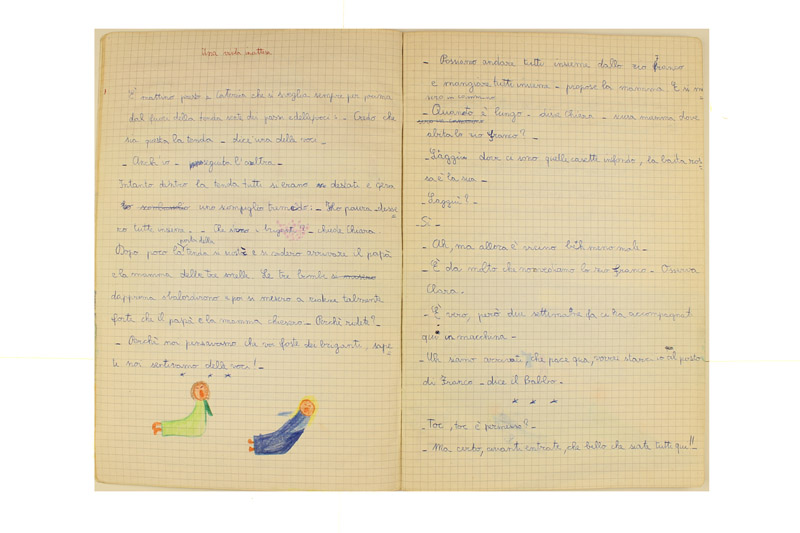 Una visita inattesa
È mattino presto e Caterina che si sveglia sempre per prima
dal fuori della tenda sente dei passi e delle voci: - Credo che
sia questa la tenda - dice una delle voci -
- Anch'io - seguita l'altra -
Intanto dentro la tenda tutti si erano destati e c'era
uno scompiglio tremendo: - Ho paura - disse
ro tutti insieme - - Che siano i briganti? - chiede Chiara.
porta della
Dopo poco la tenda si aprì e si videro arrivare il papà
e la mamma delle tre sorelle. Le tre bimbe si
dapprima sbalordirono e poi si misero a ridere talmente
forte che il papà e la mamma chiesero - Perché ridete? -
- Perchè noi pensavamo che voi foste dei briganti, sape
te noi sentivamo delle voci! -
* * *
- Possiamo andare tutti insieme dallo zio Franco
e mangiare tutti insieme - propose la mamma. E si
- Quanto è lungo - dice Chiara - scusa mamma dove
abita lo zio Franco? -
- Laggiù dove ci sono quelle casette in fondo, la baita ros
sa è la sua -
- Laggiù? -
- Sì -
- Ah, ma allora è vicino beh meno male -
- È da molto che non vediamo lo zio Franco - Osserva
Clara.
- È vero, però due settimane fa ci ha accompagnat
qui in macchina -
- Uh siamo arrivati, che pace qua, vorrei starci io al posto
di Franco - dice il Babbo -
* * *
- Toc, toc è permesso? -
- Ma certo, avanti entrate, che bello che siate tutti qui!! -